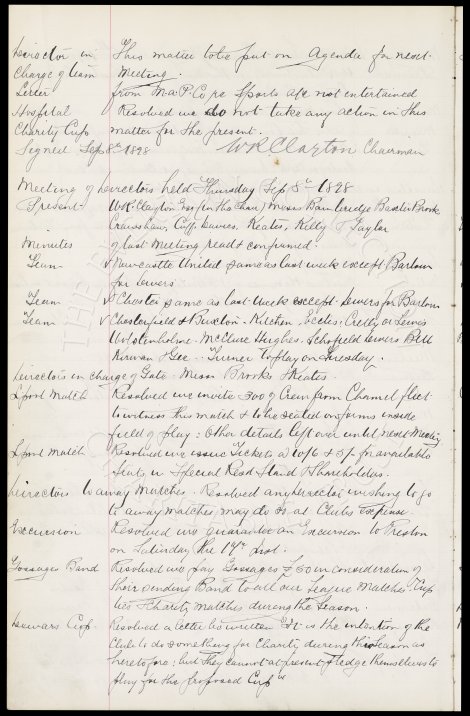 Director in This matter to be put on Agenda for next
charge of team meeting.
Letter from M.a.P.Co re Sports a/c not entertained
Hospital Resolved we do not take any action in this
Charity Cup matter for the present.
Signed Sep 8th 1898 W R Clayton Chairman
Meeting of Directors held Thursday Sep 8th 1898
Present W.R. Clayton Esq (in the Chair) Messrs Bainbridge Baxter Brook
Crawshaw, Cuff, Davies. Keates, Kelly & Taylor
Minutes of last meeting read & confirmed.
Team v Newcastle United same as last week except Barlow
for Lewers
Team v Chester same as last week except Lewers for Barlow
Team v Chesterfield & Buxton - Kitchen, Eccles, Crelly or Lewis
Wolstenholme. McClure Hughes. Schofield Lewers Bell
Kirwan & Gee. Turner to play on Tuesday.
Directors in charge of Gate. Messrs Brooks & Keates.
Lpool Match Resolved we invite 300 of Crew from Channel fleet
to witness this match & to be seated on forms inside
field of play: Other details left over until next meeting
Lpool match Resolved we issue tickets @ 10/6 & 5/- for available
Seats in Special Resd Stand & Shareholders.
Directors to away Matches. Resolved any director wishing to go
to away matches may do so at Clubs expense.
Excursion Resolved we guarantee an Excursion to Preston
on Saturday the 17th inst.
Gossages Band Resolved we pay Gossages £50 in consideration of
their sending Band to all our League Matches Cup
ties & Charity matches during the Season.
Dewars Cup. Resolved a letter be written "It is the intention of the
Club to do something for Charity during this season as
heretofore: but they cannot at present pledge themselves to
play for this proposed Cup"